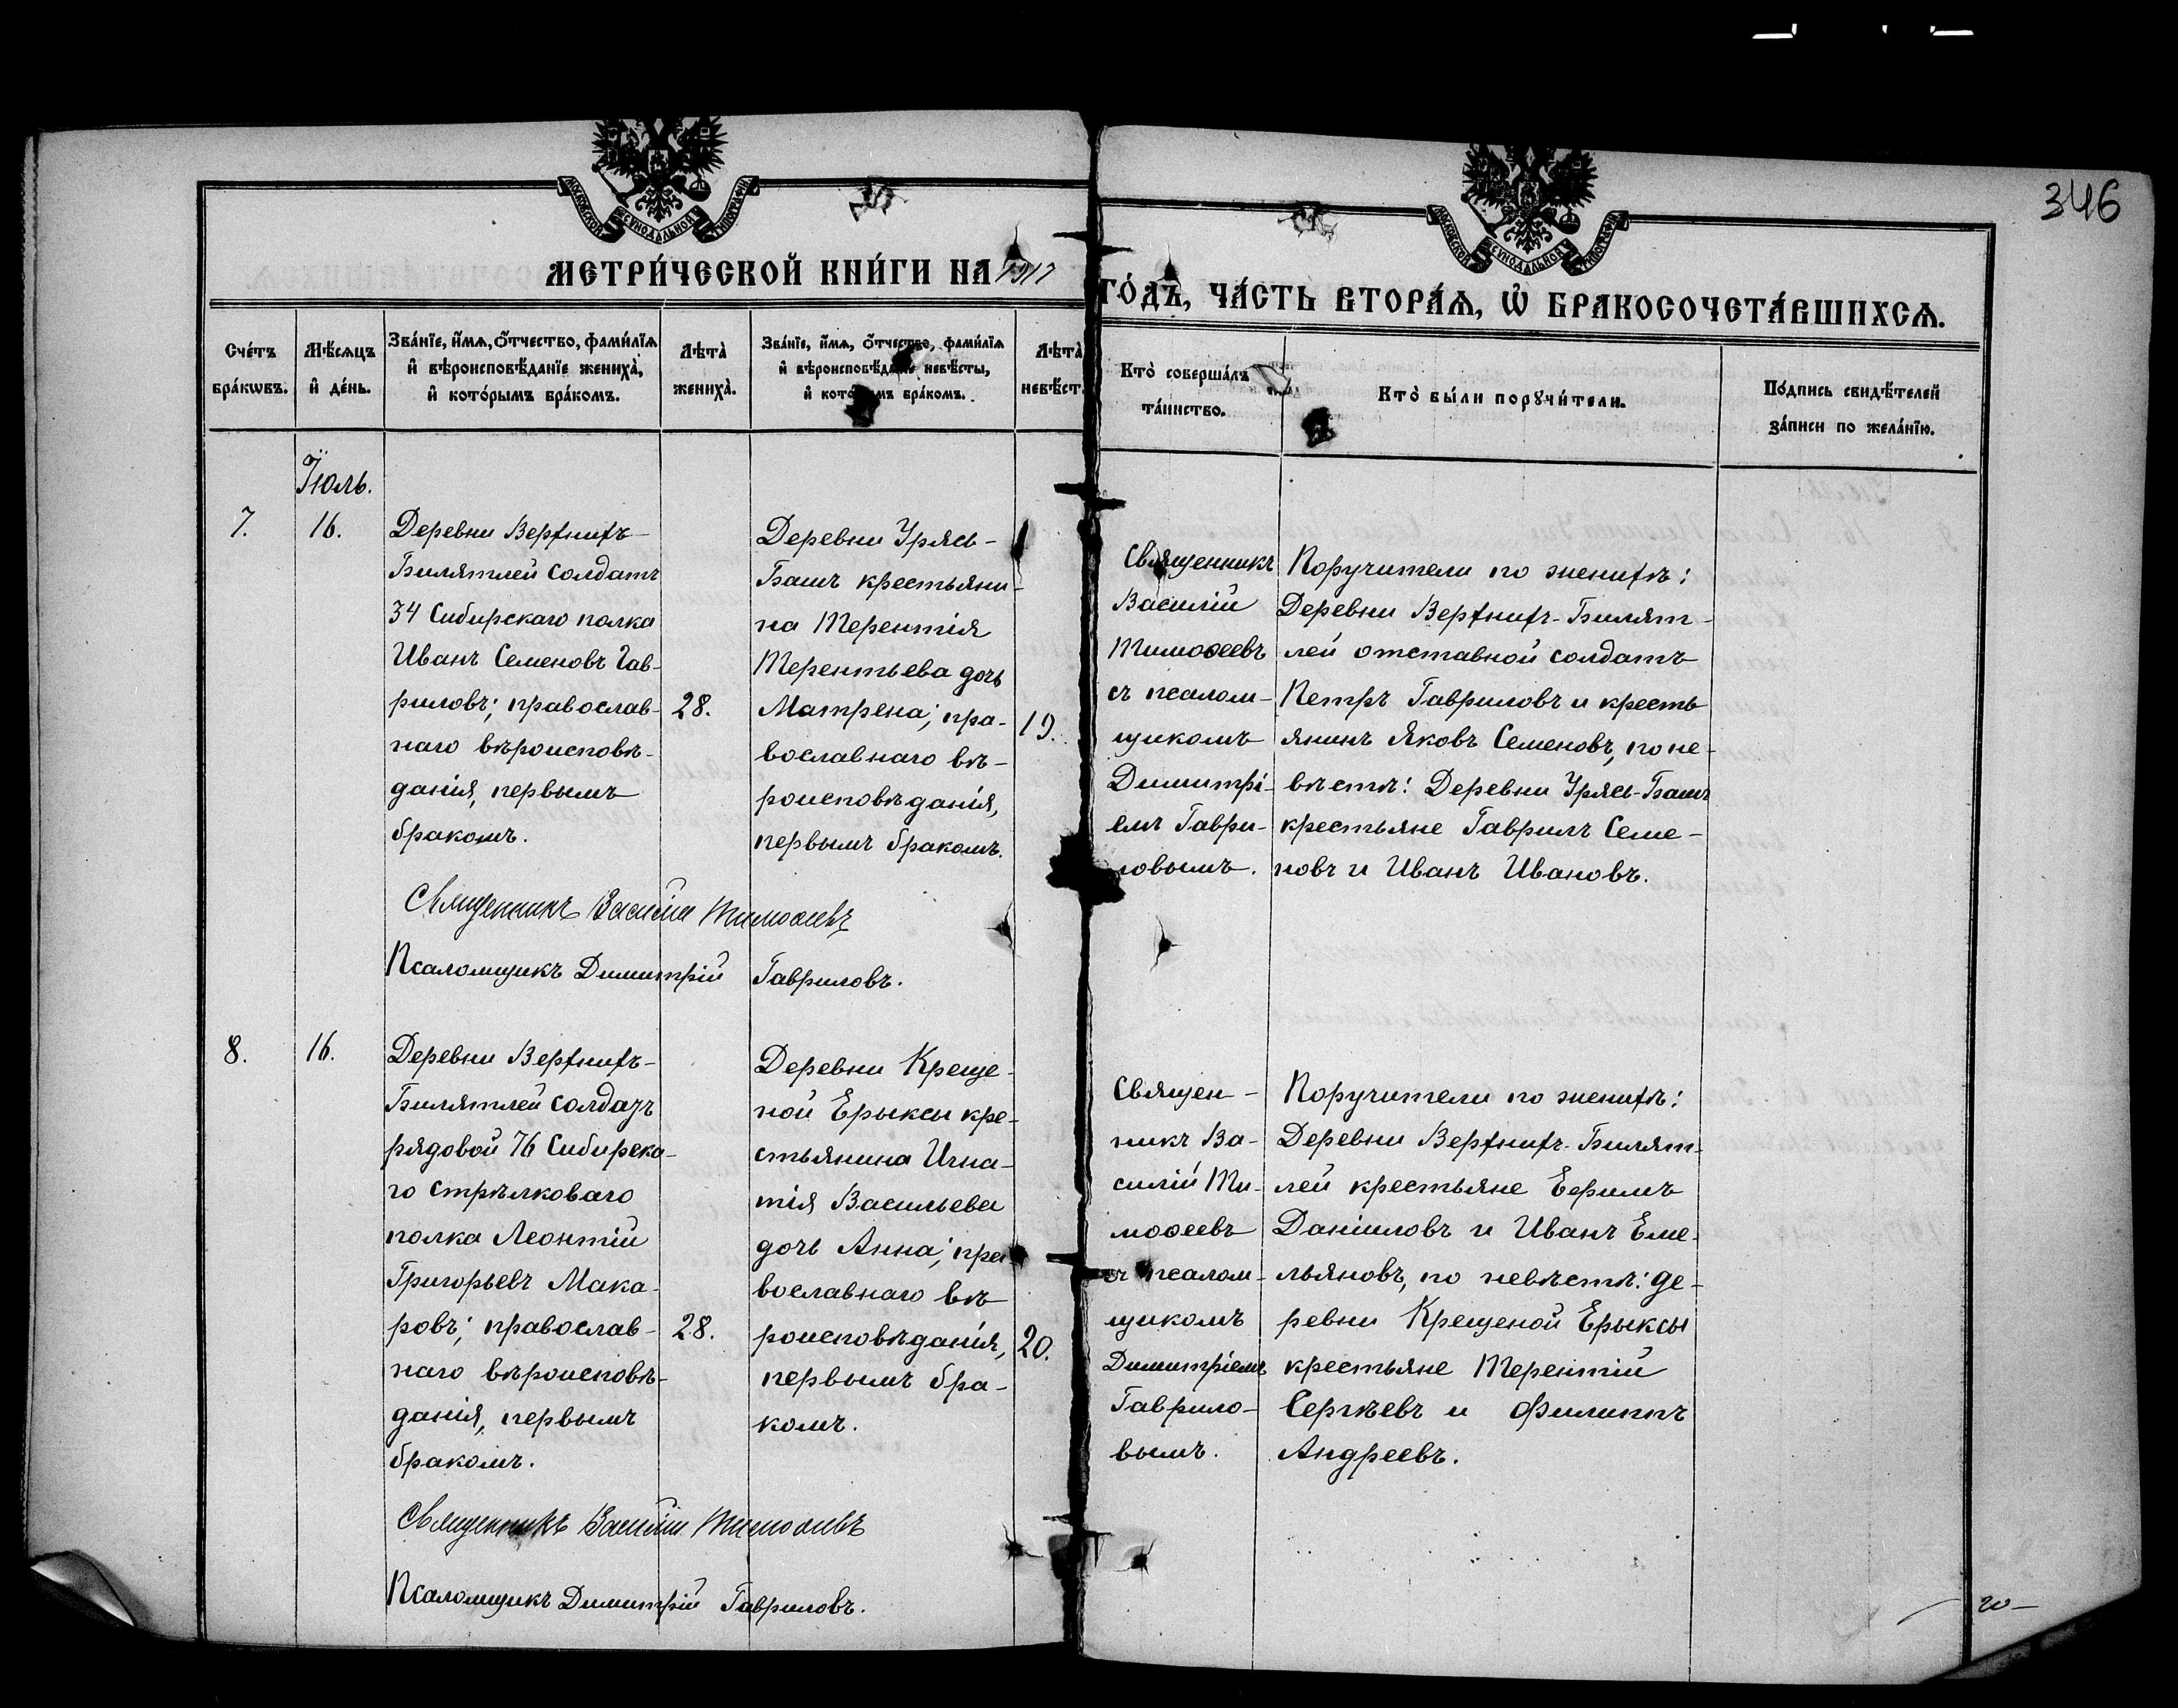 346
МОСКОВСКОЙ СѴНОДАЛЬНОЙ ТИПОГРАФІИ
МОСКОВСКОЙ СѴНОДАЛЬНОЙ ТИПОГРАФІИ
МЕТРИ́ЧЕСКОЙ КНИ́ГИ НА 1917 ГО́ДЪ, ЧА́СТЬ ВТОРА́Ѧ, Ѡ҆ БРАКОСОЧЕТА́ВШИХСѦ.
Сче́тъ
бра́кѡвъ.
Мѣ́сѧцъ
и҆ де́нь.
Зва́нїе, и҆́мѧ, ѻ҆́тчество, фами́лїѧ
и҆ вѣроисповѣ́данїе жениха̀,
и҆ кото́рымъ бра́комъ.
Лѣта̀
жениха̀.
Зва́нїе, и҆́мѧ, ѻ҆́тчество, фами́лїѧ
и҆ вѣроисповѣ́данїе невѣ́сты,
и҆ кото́рымъ бра́комъ.
Лѣта̀
невѣ́ст.
Кто̀ соверша́лъ
та́инство.
Кто̀ бы́ли порꙋчи́тели.
По́дпись свидѣ́телей
за́писи по жела́нїю.
Їюль.
7.
16.
Деревни Верхнихъ-
Билятлей солдатъ
34 Сибирскаго полка
Иванъ Семеновъ Гав-
риловъ; православ-
наго вѣроисповѣ-
данія, первымъ
бракомъ.
28.
Деревни Урясь-
Башъ крестьяни-
на Терентія
Терентьева дочь
Матрена; пра-
вославнаго вѣ-
роисповѣданія,
первымъ бракомъ.
19.
Священникъ
Василій
Тимоѳеевъ
съ псалом-
щикомъ
Димитрі-
емъ Гаври-
ловымъ.
Поручители по женихѣ:
Деревни Верхнихъ-Билят-
лей отставной солдатъ
Петръ Гавриловъ и кресть
янинъ Яковъ Семеновъ, по не-
вѣстѣ: Деревни Урясь-Башъ
крестьяне Гаврилъ Семе-
новъ и Иванъ Ивановъ.
Священникъ Василій Тимоѳеевъ
Псаломщикъ Димитрій Гавриловъ.
8.
16.
Деревни Верхнихъ-
Билятлей солдатъ
рядовой 76 Сибирска-
го стрѣлковаго
полка Леонтій
Григорьевъ Мака-
ровъ; православ-
наго вѣроисповѣ-
данія, первымъ
бракомъ.
28.
Деревни Креще-
ной Ерыксы кре-
стьянина Игна-
тія Васильева
дочь Анна; пра-
вославнаго вѣ
роисповѣданія,
первымъ бра-
комъ.
20.
Священ-
никъ Ва-
силій Ти-
моѳеевъ
съ псалом-
щикомъ
Димитріемъ
Гаврило-
вымъ.
Поручители по женихѣ:
Деревни Верхнихъ-Билят-
лей крестьяне Ефимъ
Даніиловъ и Иванъ Еме-
льяновъ, по невѣстѣ: де-
ревни Крещеной Ерыксы
крестьяне Терентій
Сергѣевъ и Филиппъ
Андреевъ.
Священникъ Василій Тимоѳеевъ
Псаломщикъ Димитрій Гавриловъ.